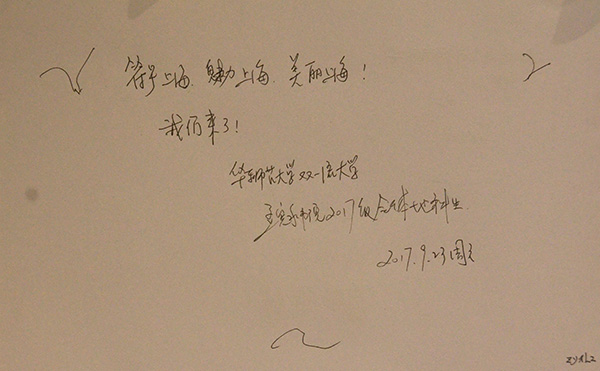 符号上海、魅力上海、美丽上海！
我们来了！
华东师范大学双一流大学
2017级全体本地科生
2017.9.23周六